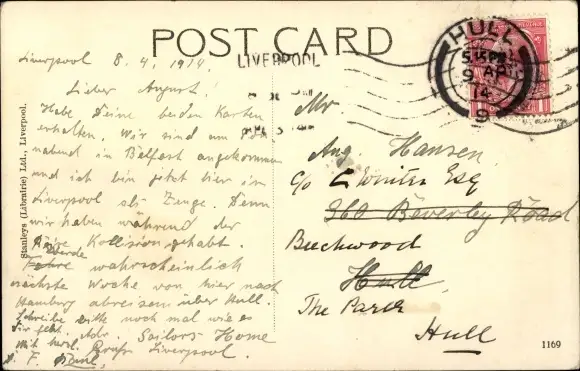 POST CARD
Liverpool 8.4.1914.
Lieber August!
Habe Deine beiden Karten
erhalten. Wir sind am Sonn
abend in Belfast angekommen
und ich bin jetzt hier in
Liverpool als Zeuge. Denn
wir haben während der
Reise Kollision gehabt.
werde
wahrscheinlich
nächste Woche von hier nach
Hamburg abreisen über Hull.
Schreibe bitte noch mal wie es
Dir geht. Adr. Sailors Home
Liverpool.
mit herzl. Gruß
D. F.
Stanleys (Libratrie) Ltd., Liverpool.
LIVERPOOL
HULL
5.15 PM
9 AP
14
9
Mr
Aug. Hansen
c/o C Winter Esq
360 Beverley Road
Beechwood
Hull
The Park
Hull
1169